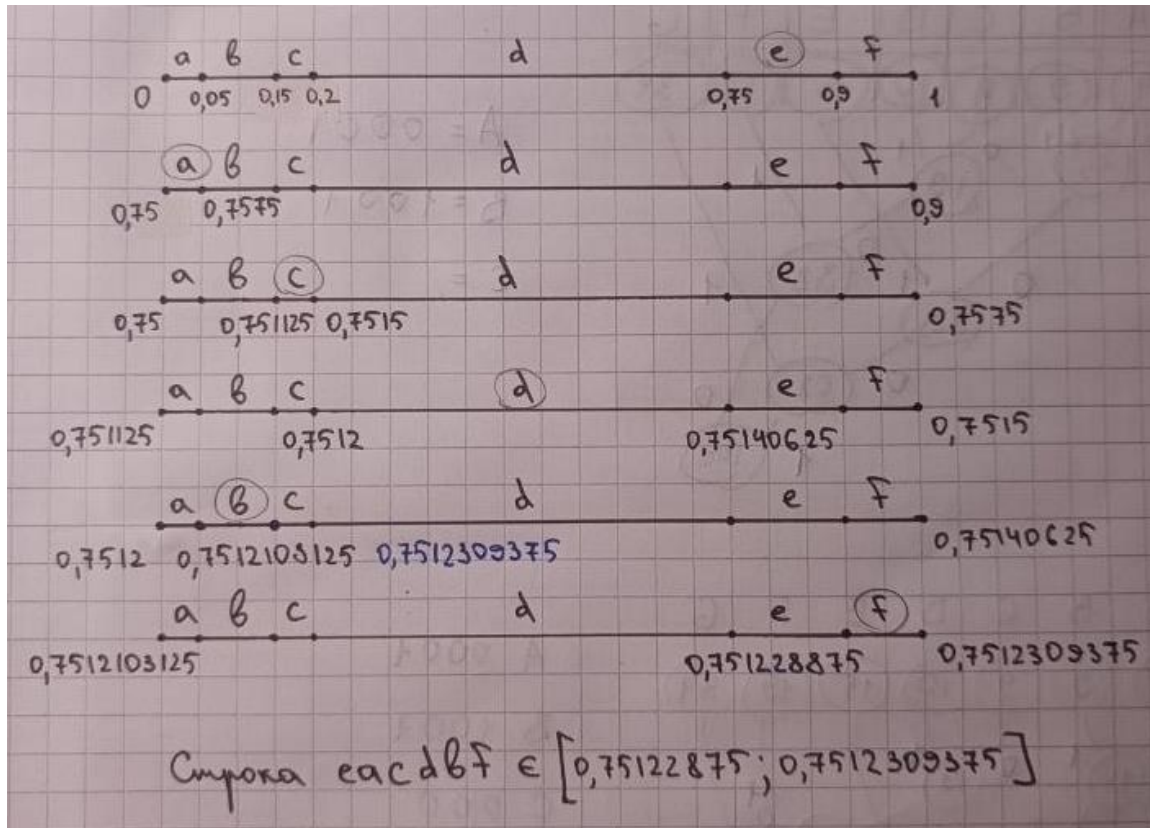 a в c d e f
0 0,05 0,15 0,2 0,75 0,9 1
a в c d e f
0,75 0,7575 0,9
a в c d e f
0,75 0,751125 0,7515 0,7575
a в c d e f
0,751125 0,7512 0,75140625 0,7515
a в c d e f
0,7512 0,7512103125 0,7512309375 0,75140625
a в c d e f
0,7512103125 0,751228875 0,7512309375
Строка eacdвf ∈ [0,75122875; 0,7512309375]